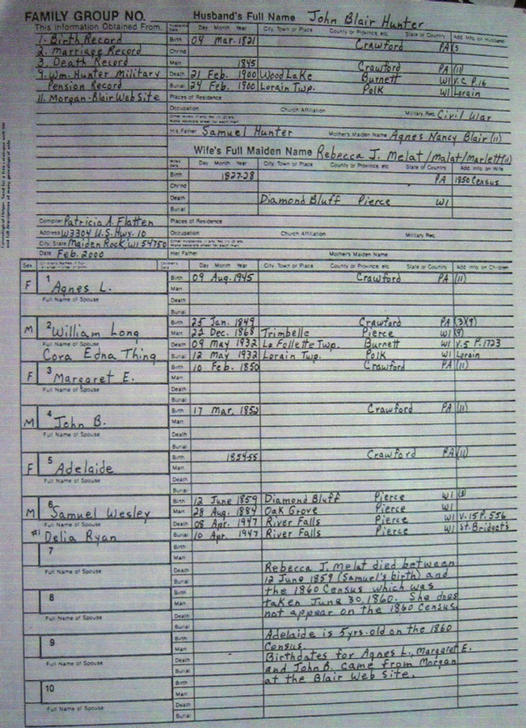 FAMILY GROUP NO.
Husband's Full Name John Blair Hunter
This Information Obtained From:
1. Birth Record
2. Marriage Record
3. Death Record
9. Wm. Hunter Military
Pension Record
11. Morgan-Blair Web Site
Day Month Year City, Town or Place County or Province, etc. State or Country Add. Info. on Husband
Birth 04 Mar. 1821 Crawford PA
Chrnd
Marr. 1845 Crawford PA (11)
Death 21 Feb. 1900 Wood Lake Burnett WI V.C P.16
Burial 24 Feb. 1900 Lorain Twp. Polk WI Lorain
Places of Residence
Occupation Church Affiliation Military Rec. Civil War
His Father Samuel Hunter Mother's Maiden Name Agnes Nancy Blair (11)
Wife's Full Maiden Name Rebecca J. Melat/Malat/Marlett (11)
Day Month Year City, Town or Place County or Province, etc. State or Country Add. Info. on Wife
Birth 1827-28 PA 1850 Census
Chrnd
Death Diamond Bluff Pierce WI
Burial
Compiler Patricia A. Flatten
Address W3304 U.S. Hwy. 10
City, State Maiden Rock, WI 54750
Date Feb. 2000
Places of Residence
Occupation Church Affiliation Military Rec.
Her Father Mother's Maiden Name
Sex
Day Month Year City, Town or Place County or Province, etc. State or Country Add. Info. on Children
F 1 Agnes L.
Full Name of Spouse
Birth 09 Aug. 1945 Crawford PA (11)
Marr.
Death
Burial
M 2 William Long
Full Name of Spouse
Cora Edna Thing
Birth 25 Jan. 1849 Crawford PA (3)(9)
Marr. 22 Dec. 1868 Trimbelle Pierce WI (9)
Death 09 May 1932 La Follette Twp. Burnett WI V.5 P.1723
Burial 12 May 1932 Lorain Twp. Polk WI Lorain
F 3 Margaret E.
Full Name of Spouse
Birth 10 Feb. 1850 Crawford PA (11)
Marr.
Death
Burial
M 4 John B.
Full Name of Spouse
Birth 17 Mar. 1852 Crawford PA (11)
Marr.
Death
Burial
F 5 Adelaide
Full Name of Spouse
Birth 1854-55 Crawford PA (11)
Marr.
Death
Burial
M 6 Samuel Wesley
Full Name of Spouse
#1 Delia Ryan
Birth 12 June 1859 Diamond Bluff Pierce WI
Marr. 28 Aug. 1884 Oak Grove Pierce WI
Death 08 Apr. 1947 River Falls Pierce WI V.15 P.556
Burial 10 Apr. 1947 River Falls Pierce WI St. Bridget's
7
Full Name of Spouse
Birth
Marr.
Death
Burial
Rebecca J. Melat died between
12 June 1859 (Samuel's birth) and
the 1860 Census which was
taken June 30, 1860. She does
not appear on the 1860 Census.
8
Full Name of Spouse
Birth
Marr.
Death
Burial
Adelaide is 5 yrs. old on the 1860
Census.
9
Full Name of Spouse
Birth
Marr.
Death
Burial
Birthdates for Agnes L., Margaret E.
and John B. came from Morgan
at the Blair Web Site.
10
Full Name of Spouse
Birth
Marr.
Death
Burial